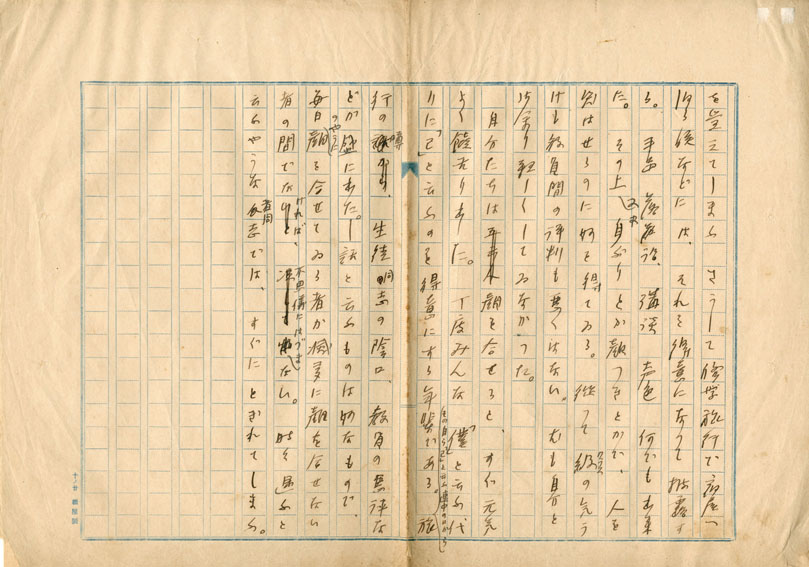 を覚えてしまふ さうして修学旅行で宿屋へ
泊つた後などには、それを得意になつて披露す
る。手品 落語 講談 声色 何でも出来
た。その上又、身ぶりとか顔つきとかで、人を
笑はせるのに妙を得てゐる。従つて級の気う
けも教員間の評判も悪くはない。尤も自分と
は余り親しくしてゐなかつた。
自分たちは顔を合せると、すぐ元気
よく饒舌り出した。丁度みんな「僕」と云ふ代
りに「己」と云ふのを得意にする年輩である。
その自ら「己」と云ふ連中の口から 旅
行の噂、生徒同志の陰口、教員の悪評な
どが盛にのやうに出た。―話と云ふものは妙なもので、
毎日顔を合せてゐる者が滅多に顔を合せない
者の間でなければ、不思議にはづまない。時を思ふと
云ふやうな者同志では、すぐにとぎれてしまふ。
十ノ廿